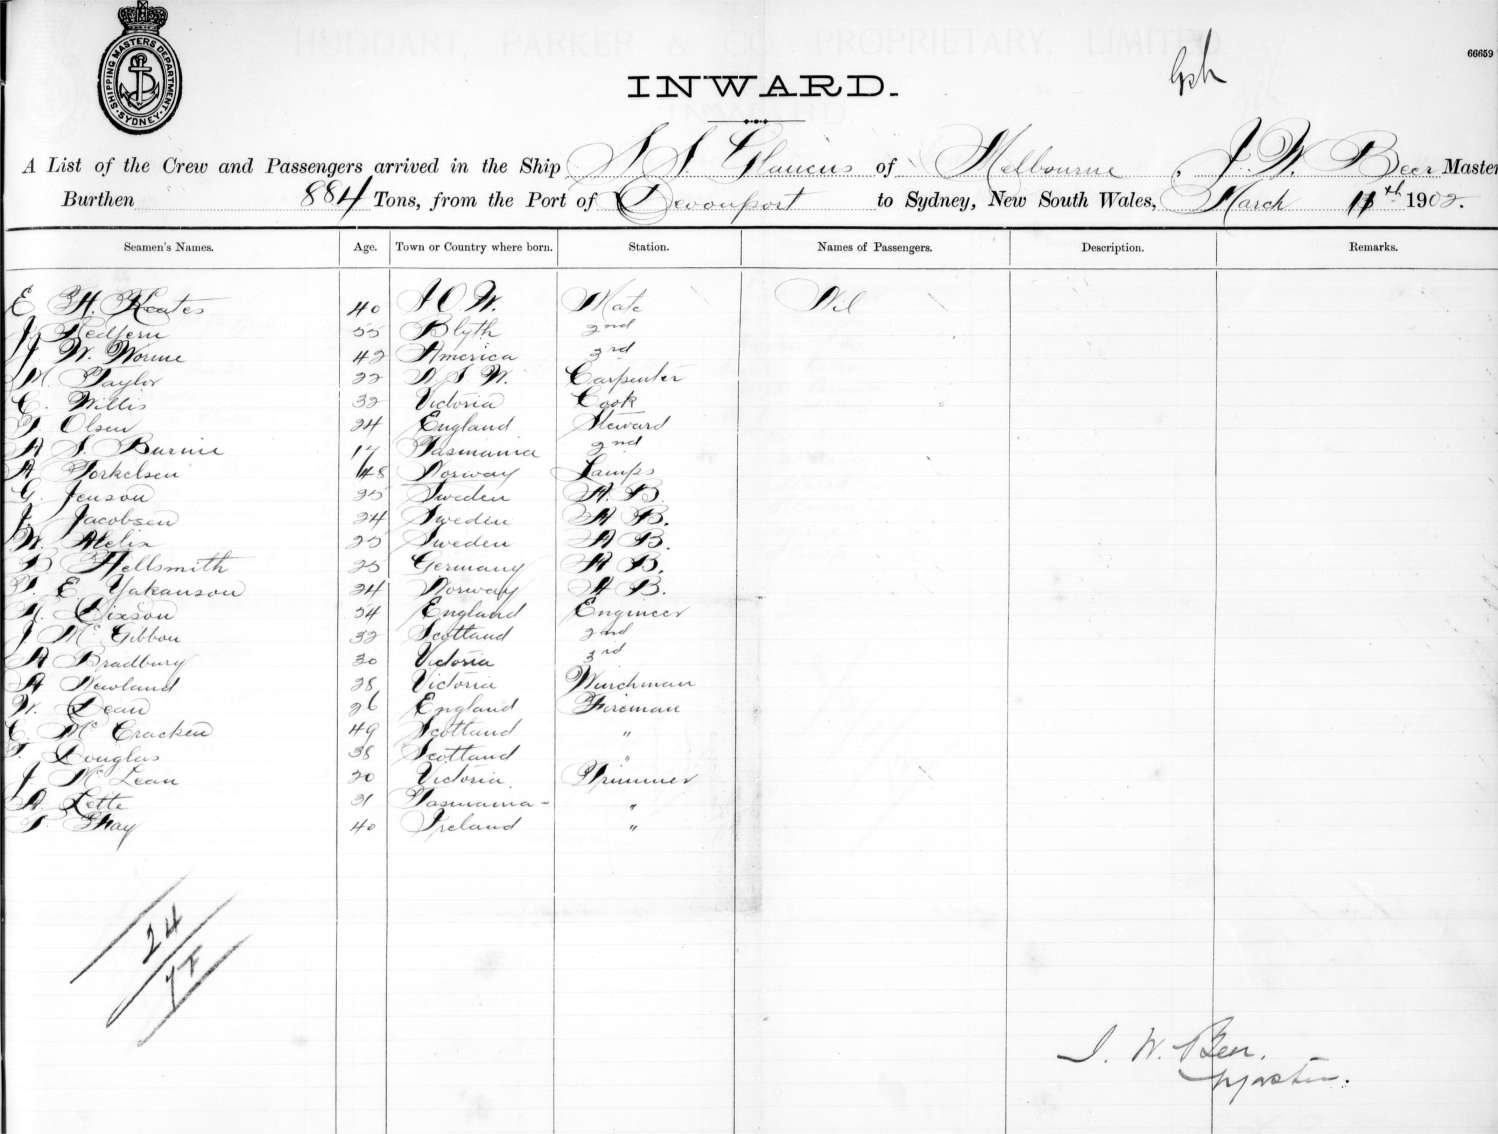 SHIPPING MASTERS DEPARTMENT SYDNEY
HUDDART, PARKER & CO. PROPRIETARY, LIMITED.
66659
INWARD.
A List of the Crew and Passengers arrived in the Ship S. S. Glaucus of Melbourne, J. W. Beer Master
Burthen 884 Tons, from the Port of Devonport to Sydney, New South Wales, March 11th 1902.
Seamen's Names. Age. Town or Country where born. Station. Names of Passengers. Description. Remarks.
E H. Keates 40 I O W. Mate Nil
J. Redfern 55 Blyth 2nd
J W. Worme 42 America 3rd
M. Taylor 22 N S W. Carpenter
C. Willis 32 Victoria Cook
T Olsen 24 England Steward
A S. Burnie 17 Tasmania 2nd
A Torkelsen 48 Norway Lamps
G. Jenson 25 Sweden A. B
J. Jacobsen 24 Sweden A B.
W. 25 Sweden A B.
Hellsmith 25 Germany A B.
T. E Yakanson 24 Norway A B.
Dixson 54 England Engineer
J McGibbon 32 Scotland 2nd
A Bradbury 30 Victoria 3rd
A Newland 28 Victoria Winchman
W. Dean 26 England Fireman
C. McCracken 49 Scotland "
T. Douglas 38 Scotland "
J McLean 20 Victoria. Trimmer
A. Lette 21 Tasmania - "
T. Shay 40 Ireland "
24
J. W. Beer.
Master.